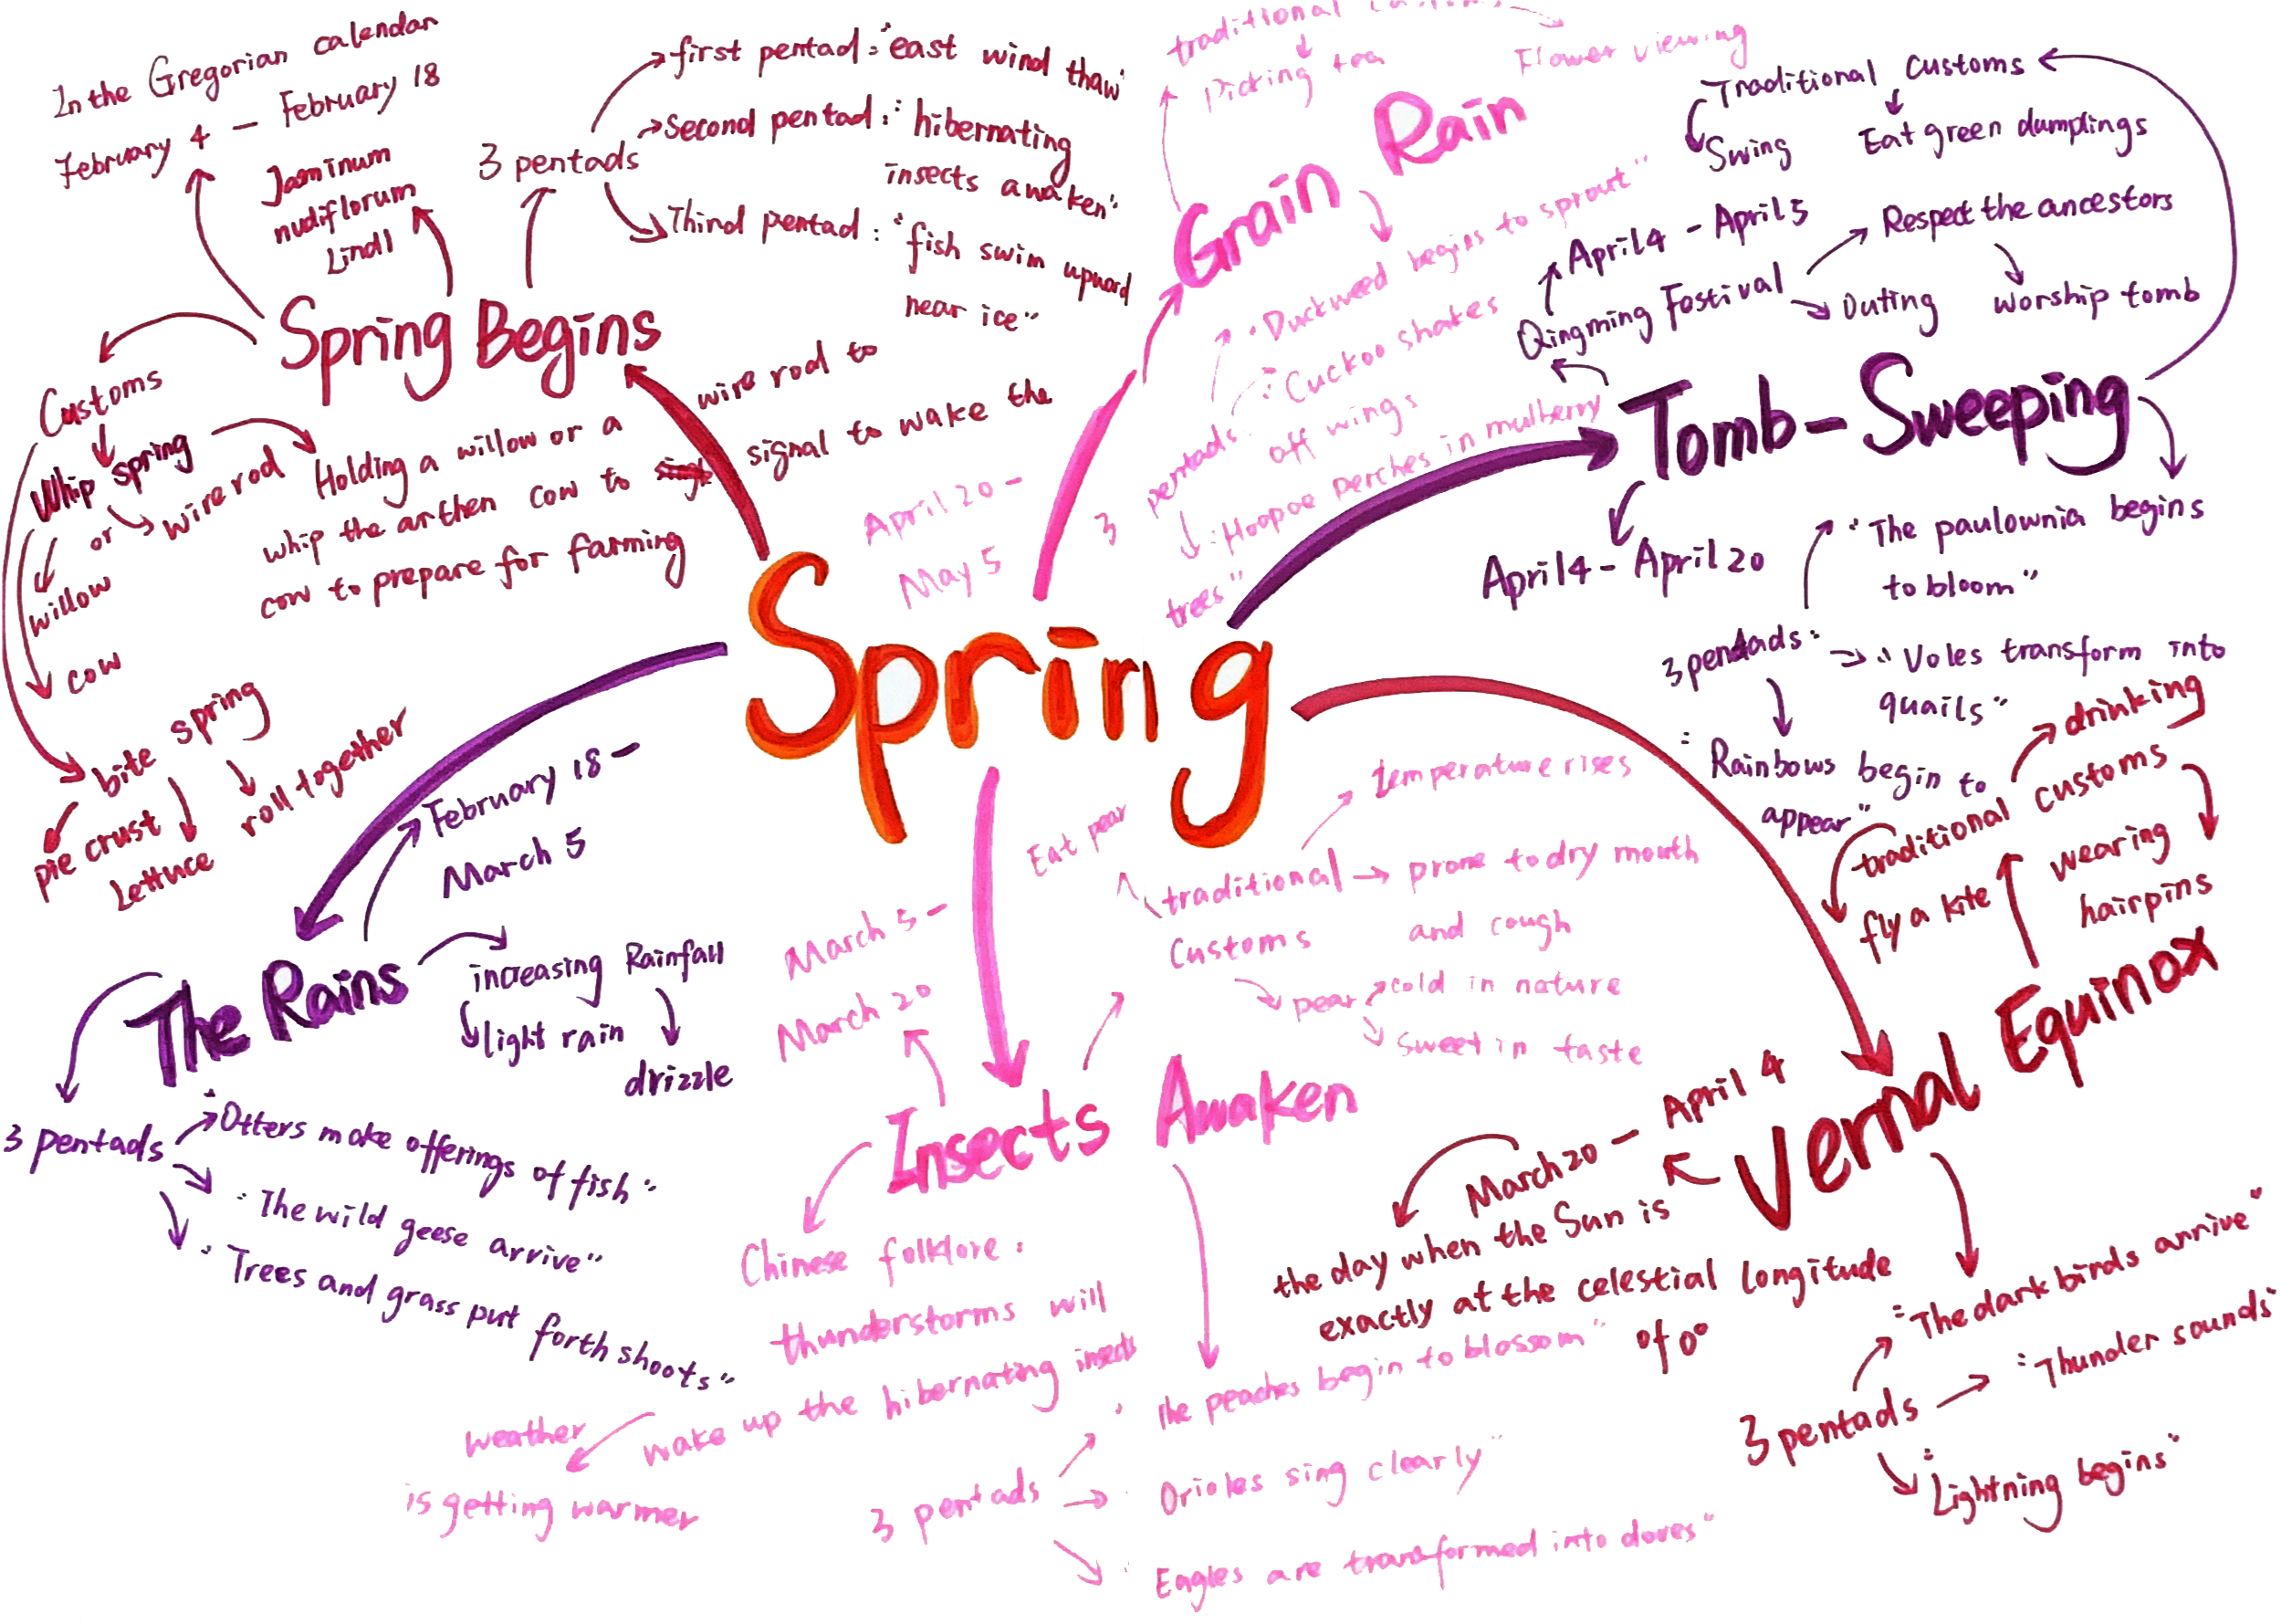 Spring
Spring Begins
In the Gregorian calendar
February 4 - February 18
Jasminum
nudiflorum
Lindl
3 pentads
first pentad: "east wind thaw"
Second pentad: "hibernating
insects awaken"
Third pentad: "fish swim upward
near ice"
Customs
Whip spring
or
wire rod
willow
cow
Holding a willow or a
wire rod to
whip the arthen cow to
signal to wake the
cow to prepare for farming
bite spring
pie crust
lettuce
roll together
The Rains
February 18 -
March 5
increasing Rainfall
light rain
drizzle
3 pentads
"Otters make offerings of fish"
"The wild geese arrive"
"Trees and grass put forth shoots"
Insects Awaken
March 5 -
March 20
Eat pear
traditional
Customs
temperature rises
prone to dry mouth
and cough
pear
cold in nature
sweet in taste
Chinese folklore:
thunderstorms will
wake up the hibernating insects
weather
is getting warmer
3 pentads
"The peaches begin to blossom"
"Orioles sing clearly"
"Eagles are transformed into doves"
Vernal Equinox
March 20 - April 4
the day when the Sun is
exactly at the celestial longitude
of 0°
traditional customs
drinking
fly a kite
wearing
hairpins
3 pentads
"The dark birds arrive"
"Thunder sounds"
"Lightning begins"
Tomb-Sweeping
April 4 - April 20
Qingming Fostival
April 4 - April 5
Respect the ancestors
worship tomb
Outing
Traditional customs
Swing
Eat green dumplings
3 pendads:
"The paulownia begins
to bloom"
"Voles transform into
quails"
"Rainbows begin to
appear"
Grain Rain
April 20 -
May 5
traditional
Picking tea
Flower viewing
3 pentads
"Duckweed begins to sprout"
"Cuckoo shakes
off wings
"Hoopoe perches in mulberry
trees"